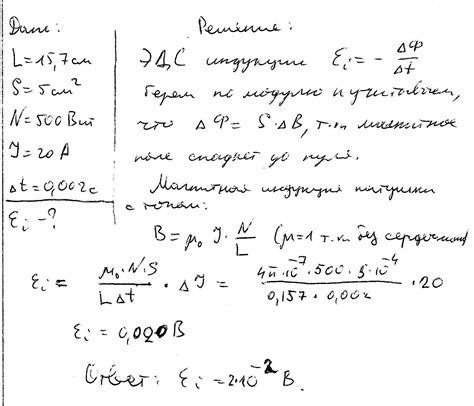 Дано:
L = 15,7 см
S = 5 см²
N = 500 Вит
I = 20 А
Δt = 0,002 с
Ɛi - ?
Решение:
ЭДС индукции Ɛi = - ΔФ/Δt
Берем по модулю и учитываем,
что ΔФ = S·ΔB, т.к магнитное
поле спадает до нуля.
Магнитная индукция катушки
с током:
B = μ₀ I · N/L (μ=1 т.к без сердечника)
Ɛi = μ₀·N·S/LΔt · ΔI = 4π·10⁻⁷·500·5·10⁻⁴/0,157·0,002 · 20
Ɛi = 0,020 В
Ответ: Ɛi = 2·10⁻² В.